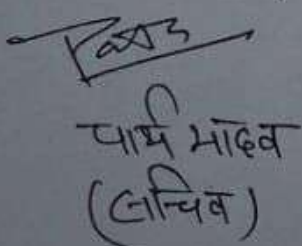 पार्थ माधव
(सचिव)